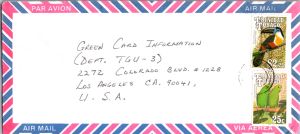 PAR AVION
AIR MAIL
TRINIDAD
TOBAGO
GREEN CARD INFORMATION
(DEPT. TGU-3)
2272 COLORADO BLVD. #1228
LOS ANGELES CA. 90041,
U. S. A.
25c
AIR MAIL
VIA AEREA